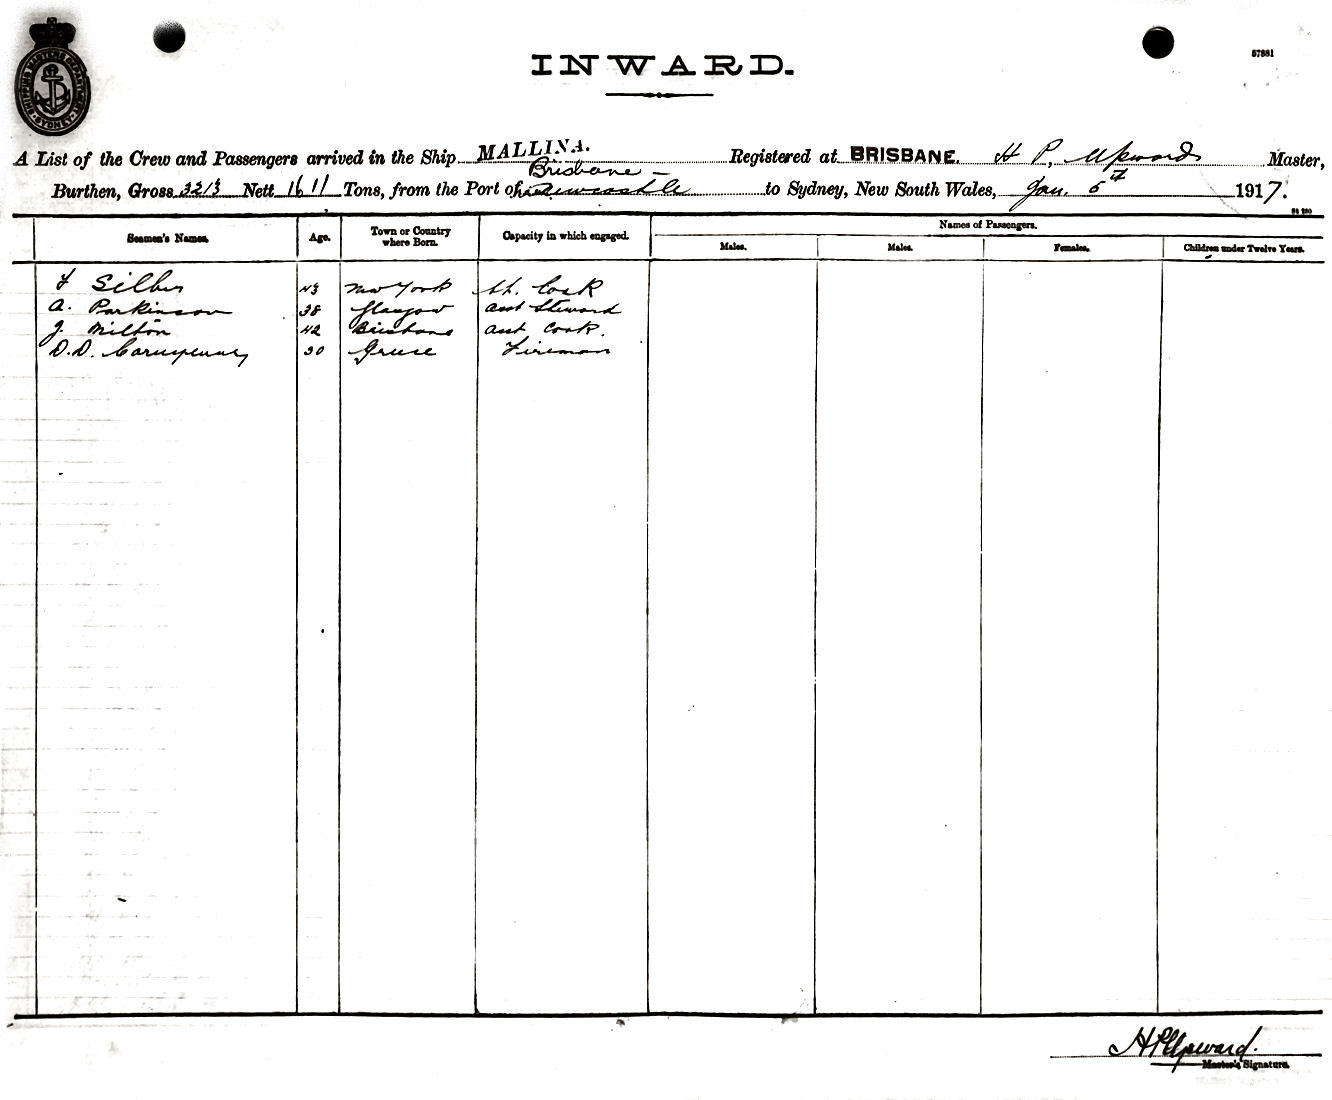 SHIPPING MASTERS DEPARTMENT SYDNEY
INWARD.
57881
A List of the Crew and Passengers arrived in the Ship MALLINA. Registered at BRISBANE. H P. Upwards Master,
Brisbane -
Burthen, Gross 3213 Nett 1611 Tons, from the Port of Newcastle to Sydney, New South Wales, Jan. 5th 1917.
Seamen's Names. Age. Town or Country where Born. Capacity in which engaged. Names of Passengers.
Males. Males. Females. Children under Twelve Years.
F Silbers 43 New York Sh. Cook
A. Parkinson 38 Glasgow asst Steward
J. Milton 42 Brisbane asst Cook.
D.D. 30 Greece Fireman
H P Upward.
Master's Signature.